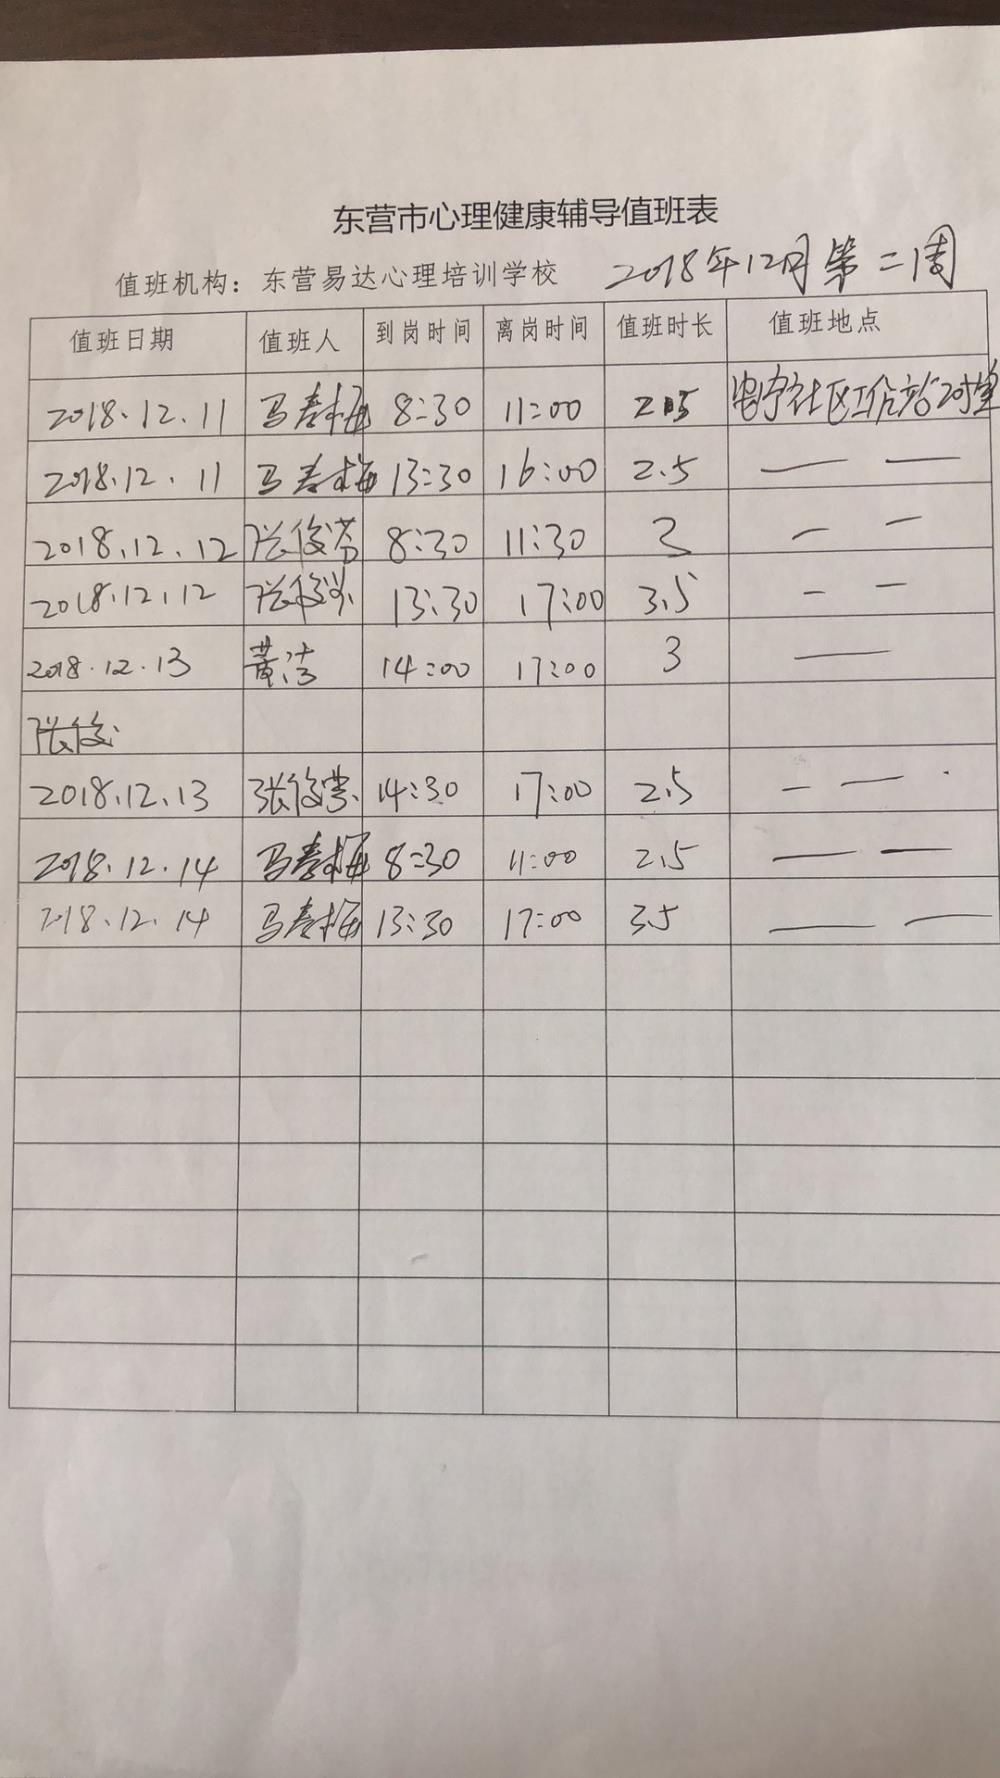 东营市心理健康辅导值班表
值班机构：东营易达心理培训学校 2018年12月第二周
值班日期 值班人 到岗时间 离岗时间 值班时长 值班地点
2018.12.11 马春梅 8:30 11:00 2.5 社区工作站
2018.12.11 马春梅 13:30 16:00 2.5 — —
2018.12.12 张俊芳 8:30 11:30 3 — —
2018.12.12 张俊 13:30 17:00 3.5 — —
2018.12.13 黄洁 14:00 17:00 3 —
张俊
2018.12.13 张俊 14:30 17:00 2.5 — —
2018.12.14 马春梅 8:30 11:00 2.5 — —
2018.12.14 马春梅 13:30 17:00 3.5 — —